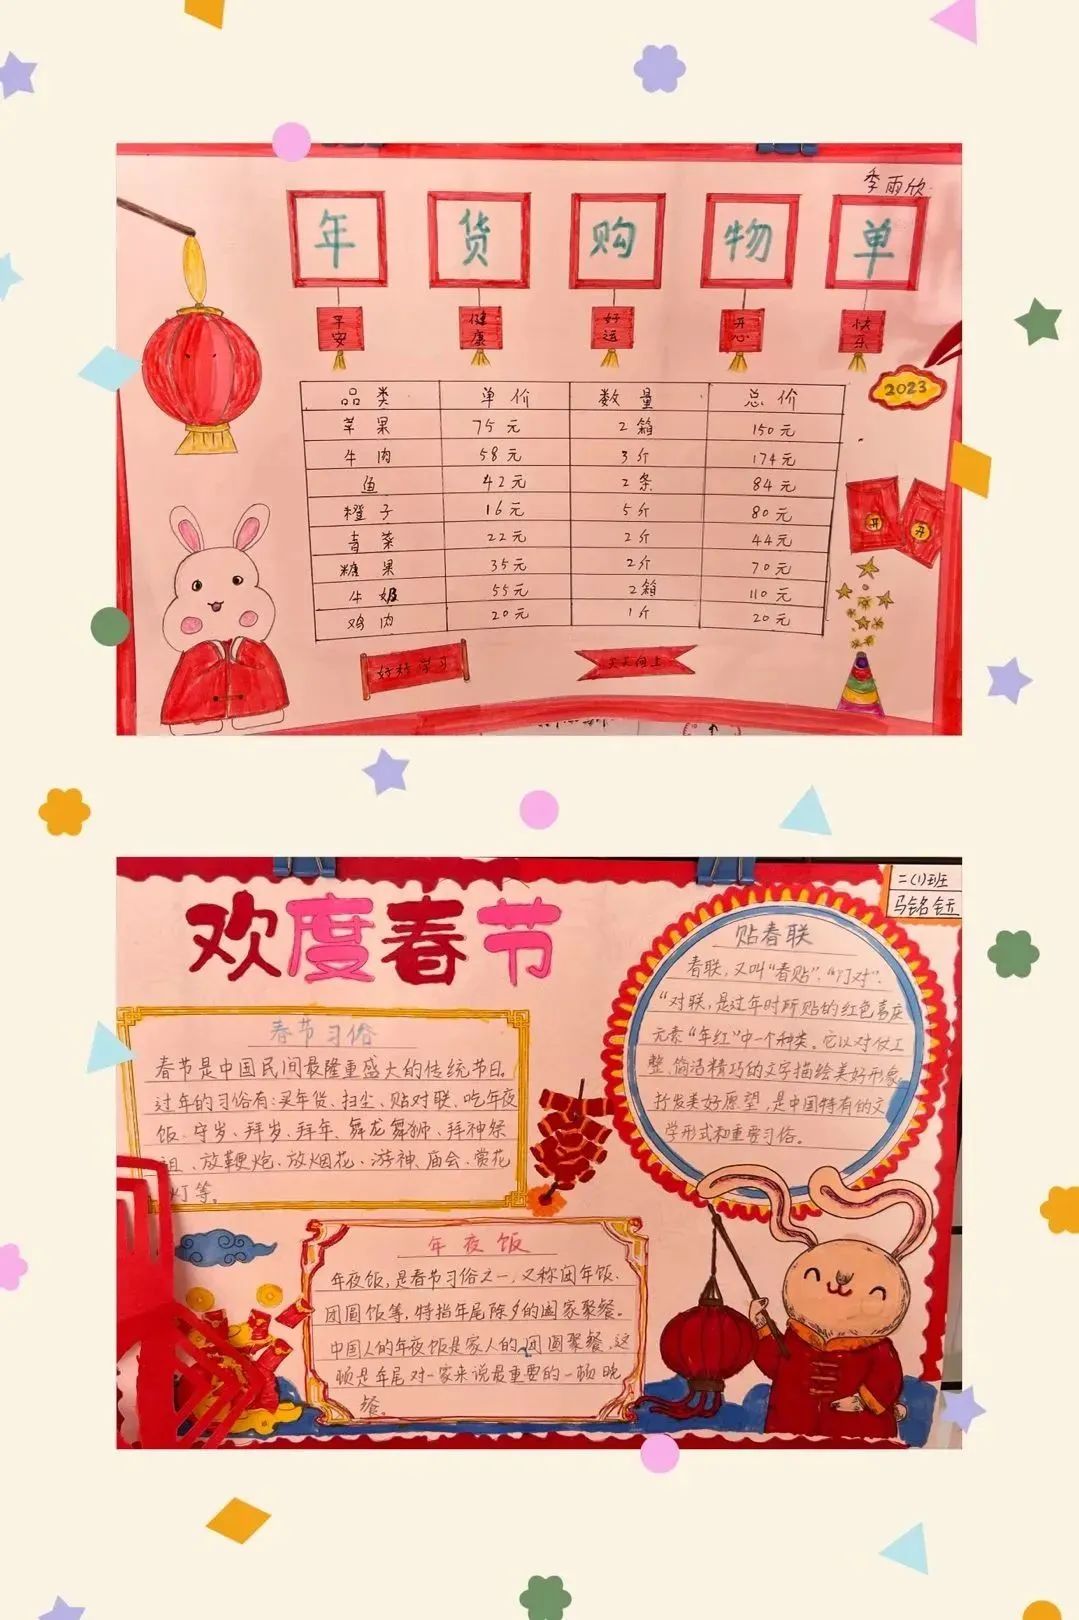 季雨欣
年 货 购 物 单
平安 健康 好运 开心 快乐
2023
品类 单价 数量 总价
苹果 75元 2箱 150元
牛肉 58元 3斤 174元
鱼 42元 2条 84元
橙子 16元 5斤 80元
青菜 22元 2斤 44元
糖果 35元 2斤 70元
牛奶 55元 2箱 110元
鸡肉 20元 1斤 20元
开 开
好好学习 天天向上
二(1)班
马铭钰
欢度春节
春节习俗
春节是中国民间最隆重盛大的传统节日
过年的习俗有:买年货、扫尘、贴对联、吃年夜
饭、守岁、拜岁、拜年、舞龙舞狮、拜神祭
祖、放鞭炮、放烟花、游神、庙会、赏花
灯等。
贴春联
春联,又叫“春贴”、“门对”、
“对联,是过年时所贴的红色喜庆
元素“年红”中一个种类。它以对仗工
整、简洁精巧的文字描绘美好形象,
抒发美好愿望,是中国特有的文
学形式和重要习俗。
年夜饭
年夜饭,是春节习俗之一,又称团年饭、
团圆饭等,特指年尾除夕的阖家聚餐。
中国人的年夜饭是家人的团圆聚餐,这
顿是年尾对一家来说最重要的一顿晚
餐。